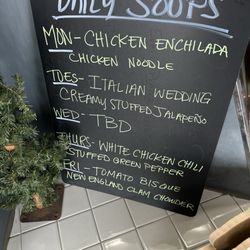 DAILY SOUPS
MON- CHICKEN ENCHILADA
CHICKEN NOODLE
TUES- ITALIAN WEDDING
CREAMY STUFFED JALAPEÑO
WED- TBD
THURS- WHITE CHICKEN CHILI
STUFFED GREEN PEPPER
FRI- TOMATO BISQUE
NEW ENGLAND CLAM CHOWDER